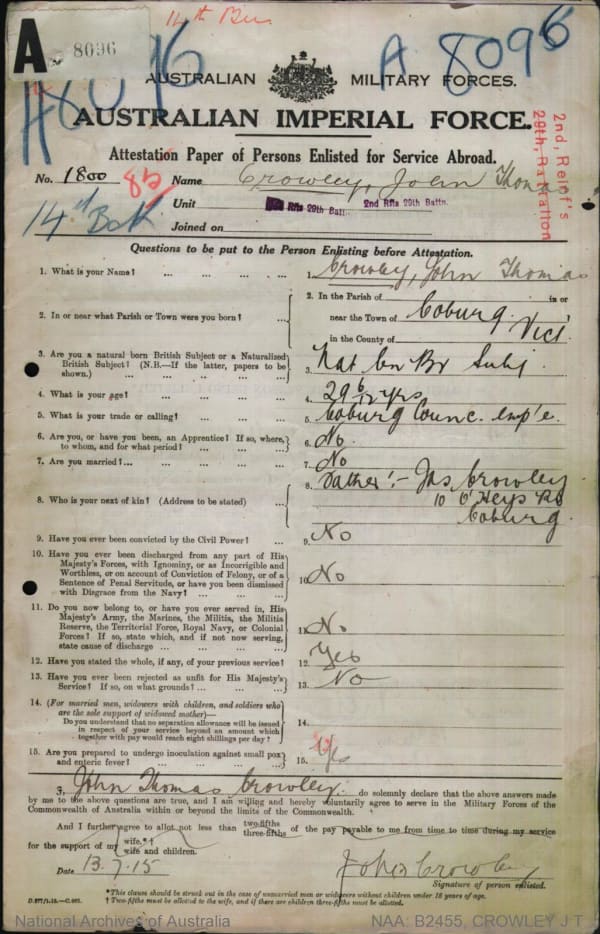 14th Bn
A No 8096
A 8096
AUSTRALIAN MILITARY FORCES.
AUSTRALIAN IMPERIAL FORCE.
Attestation Paper of Persons Enlisted for Service Abroad.
2nd, Reinf's
29th, Battalion
No. 1800 Name Crowley, John Thomas
Unit 2nd Rfts 29th Battn.
14th Batt
Joined on
Questions to be put to the Person Enlisting before Attestation.
1. What is your Name? ... 1. Crowley, John Thomas
2. In or near what Parish or Town were you born? ... 2. In the Parish of in or
near the Town of Coburg
in the County of Vict
3. Are you a natural born British Subject or a Naturalized
British Subject? (N.B.—If the latter, papers to be
shown.) ... 3. Nat bn Br Subj
4. What is your age? ... 4. 29 6/12 yrs
5. What is your trade or calling? ... 5. Coburg Counc. emp'e.
6. Are you, or have you been, an Apprentice? If so, where,
to whom, and for what period? ... 6. No.
7. Are you married? ... 7. No
8. Who is your next of kin? (Address to be stated) ... 8. Father:- Jas Crowley
10 O'Heys Rd
Coburg.
9. Have you ever been convicted by the Civil Power? ... 9. No
10. Have you ever been discharged from any part of His
Majesty's Forces, with Ignominy, or as Incorrigible and
Worthless, or on account of Conviction of Felony, or of a
Sentence of Penal Servitude, or have you been dismissed
with Disgrace from the Navy? ... 10. No
11. Do you now belong to, or have you ever served in, His
Majesty's Army, the Marines, the Militia, the Militia
Reserve, the Territorial Force, Royal Navy, or Colonial
Forces? If so, state which, and if not now serving,
state cause of discharge ... 11. No
12. Have you stated the whole, if any, of your previous service? 12. Yes
13. Have you ever been rejected as unfit for His Majesty's
Service? If so, on what grounds? ... 13. No
14. (For married men, widowers with children, and soldiers who
are the sole support of widowed mother)—
Do you understand that no separation allowance will be issued
in respect of your service beyond an amount which
together with pay would reach eight shillings per day? 14.
15. Are you prepared to undergo inoculation against small pox
and enteric fever? ... 15. Yes
I, John Thomas Crowley. do solemnly declare that the above answers made
by me to the above questions are true, and I am willing and hereby voluntarily agree to serve in the Military Forces of the
Commonwealth of Australia within or beyond the limits of the Commonwealth.
And I further agree to allot not less than two-fifths three-fifths of the pay payable to me from time to time during my service
for the support of my wife.*† wife and children.
Date 13.7.15 John Crowley
Signature of person enlisted.
*This clause should be struck out in the case of unmarried men or widowers without children under 18 years of age.
† Two-fifths must be allotted to the wife, and if there are children three-fifths must be allotted.
National Archives of Australia NAA: B2455, CROWLEY J T